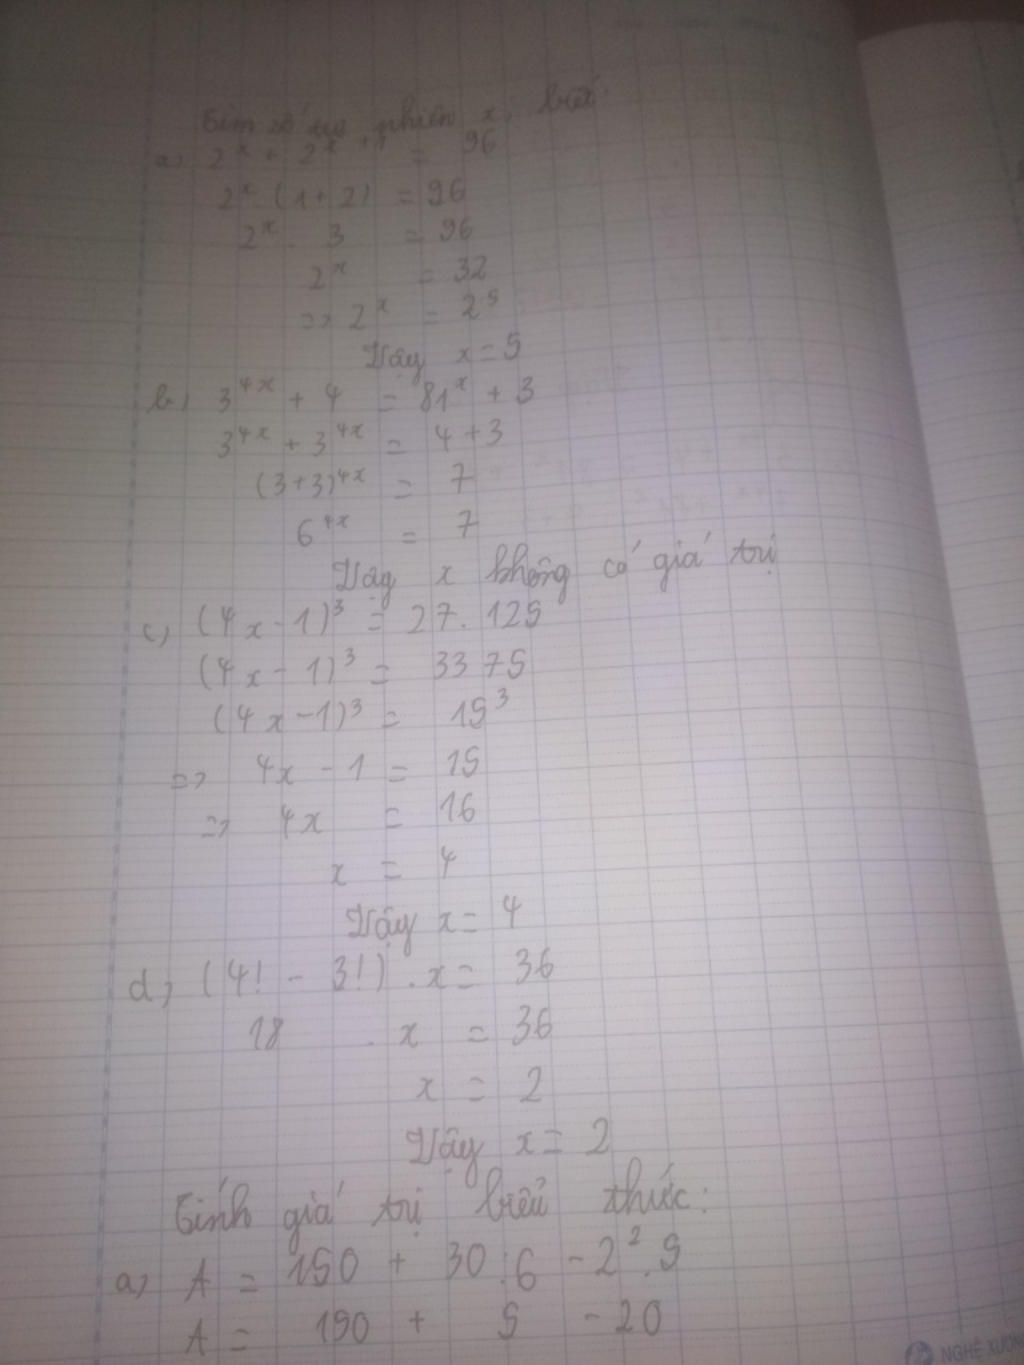 Tìm số tự nhiên x, biết:
a, 2^x + 2^x+1 = 96
2^x (1+2) = 96
2^x . 3 = 96
2^x = 32
=> 2^x = 2^5
Vậy x = 5
b, 3^4x + 4 = 81^x + 3
3^4x + 3^4x = 4 + 3
(3+3)^4x = 7
6^4x = 7
Vậy x không có giá trị
c, (4x - 1)^3 = 27.125
(4x - 1)^3 = 3375
(4x - 1)^3 = 15^3
=> 4x - 1 = 15
=> 4x = 16
x = 4
Vậy x = 4
d, (4! - 3!) . x = 36
18 . x = 36
x = 2
Vậy x = 2
Tính giá trị biểu thức:
a, A = 150 + 30 : 6 - 2^2 . 5
A = 150 + 5 - 20
NGHÊ XUÂN